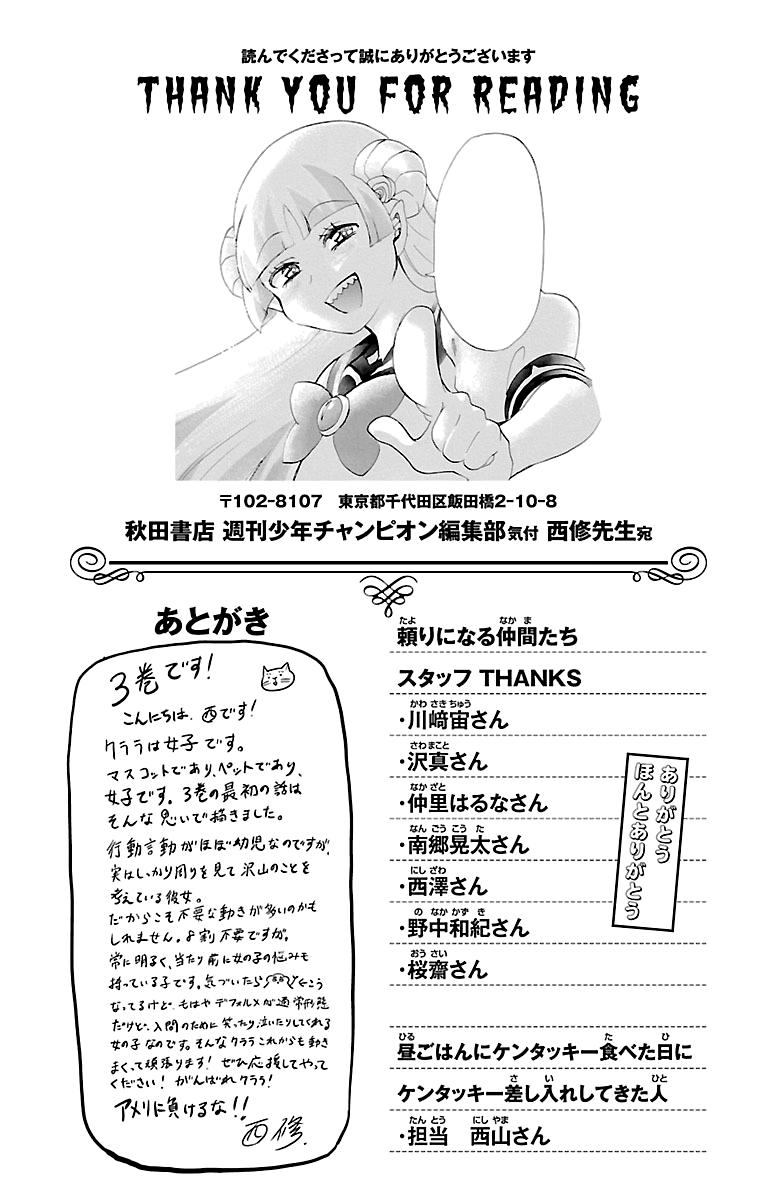 読んでくださって誠にありがとうございます
THANK YOU FOR READING
〒102-8107 東京都千代田区飯田橋2-10-8
秋田書店 週刊少年チャンピオン編集部気付 西修先生宛
あとがき
3巻です!
こんにちは、西です!
クララは女子です。
マスコットであり、ペットであり、
女子です。3巻の最初の話は
そんな思いで描きました。
行動言動がほぼ幼児なのですが、
実はしっかり周りを見て沢山のことを
考えている彼女。
だからこそ不要な動きが多いのかも
しれません。8割不要ですが。
常に明るく、当たり前に女の子の悩みも
持っている子です。気づいたら こう
なってるけど、もはやデフォルメが通常形態
だけど、入間のために笑ったり泣いたりしてくれる
女の子なのです。そんなクララこれからも動き
まくって頑張ります!ぜひ応援してやって
ください!がんばれクララ!
アメリに負けるな!!
西修.
頼りになる仲間たち
たよ なかま
スタッフ THANKS
・川﨑宙さん
かわさきちゅう
・沢真さん
さわまこと
・仲里はるなさん
なかざと
・南郷晃太さん
なんごうこうた
・西澤さん
にしざわ
・野中和紀さん
のなかかずき
・桜齋さん
おうさい
ありがとう
ほんとありがとう
昼ごはんにケンタッキー食べた日に
ひる た ひ
ケンタッキー差し入れしてきた人
さ い ひと
・担当 西山さん
たんとう にしやま